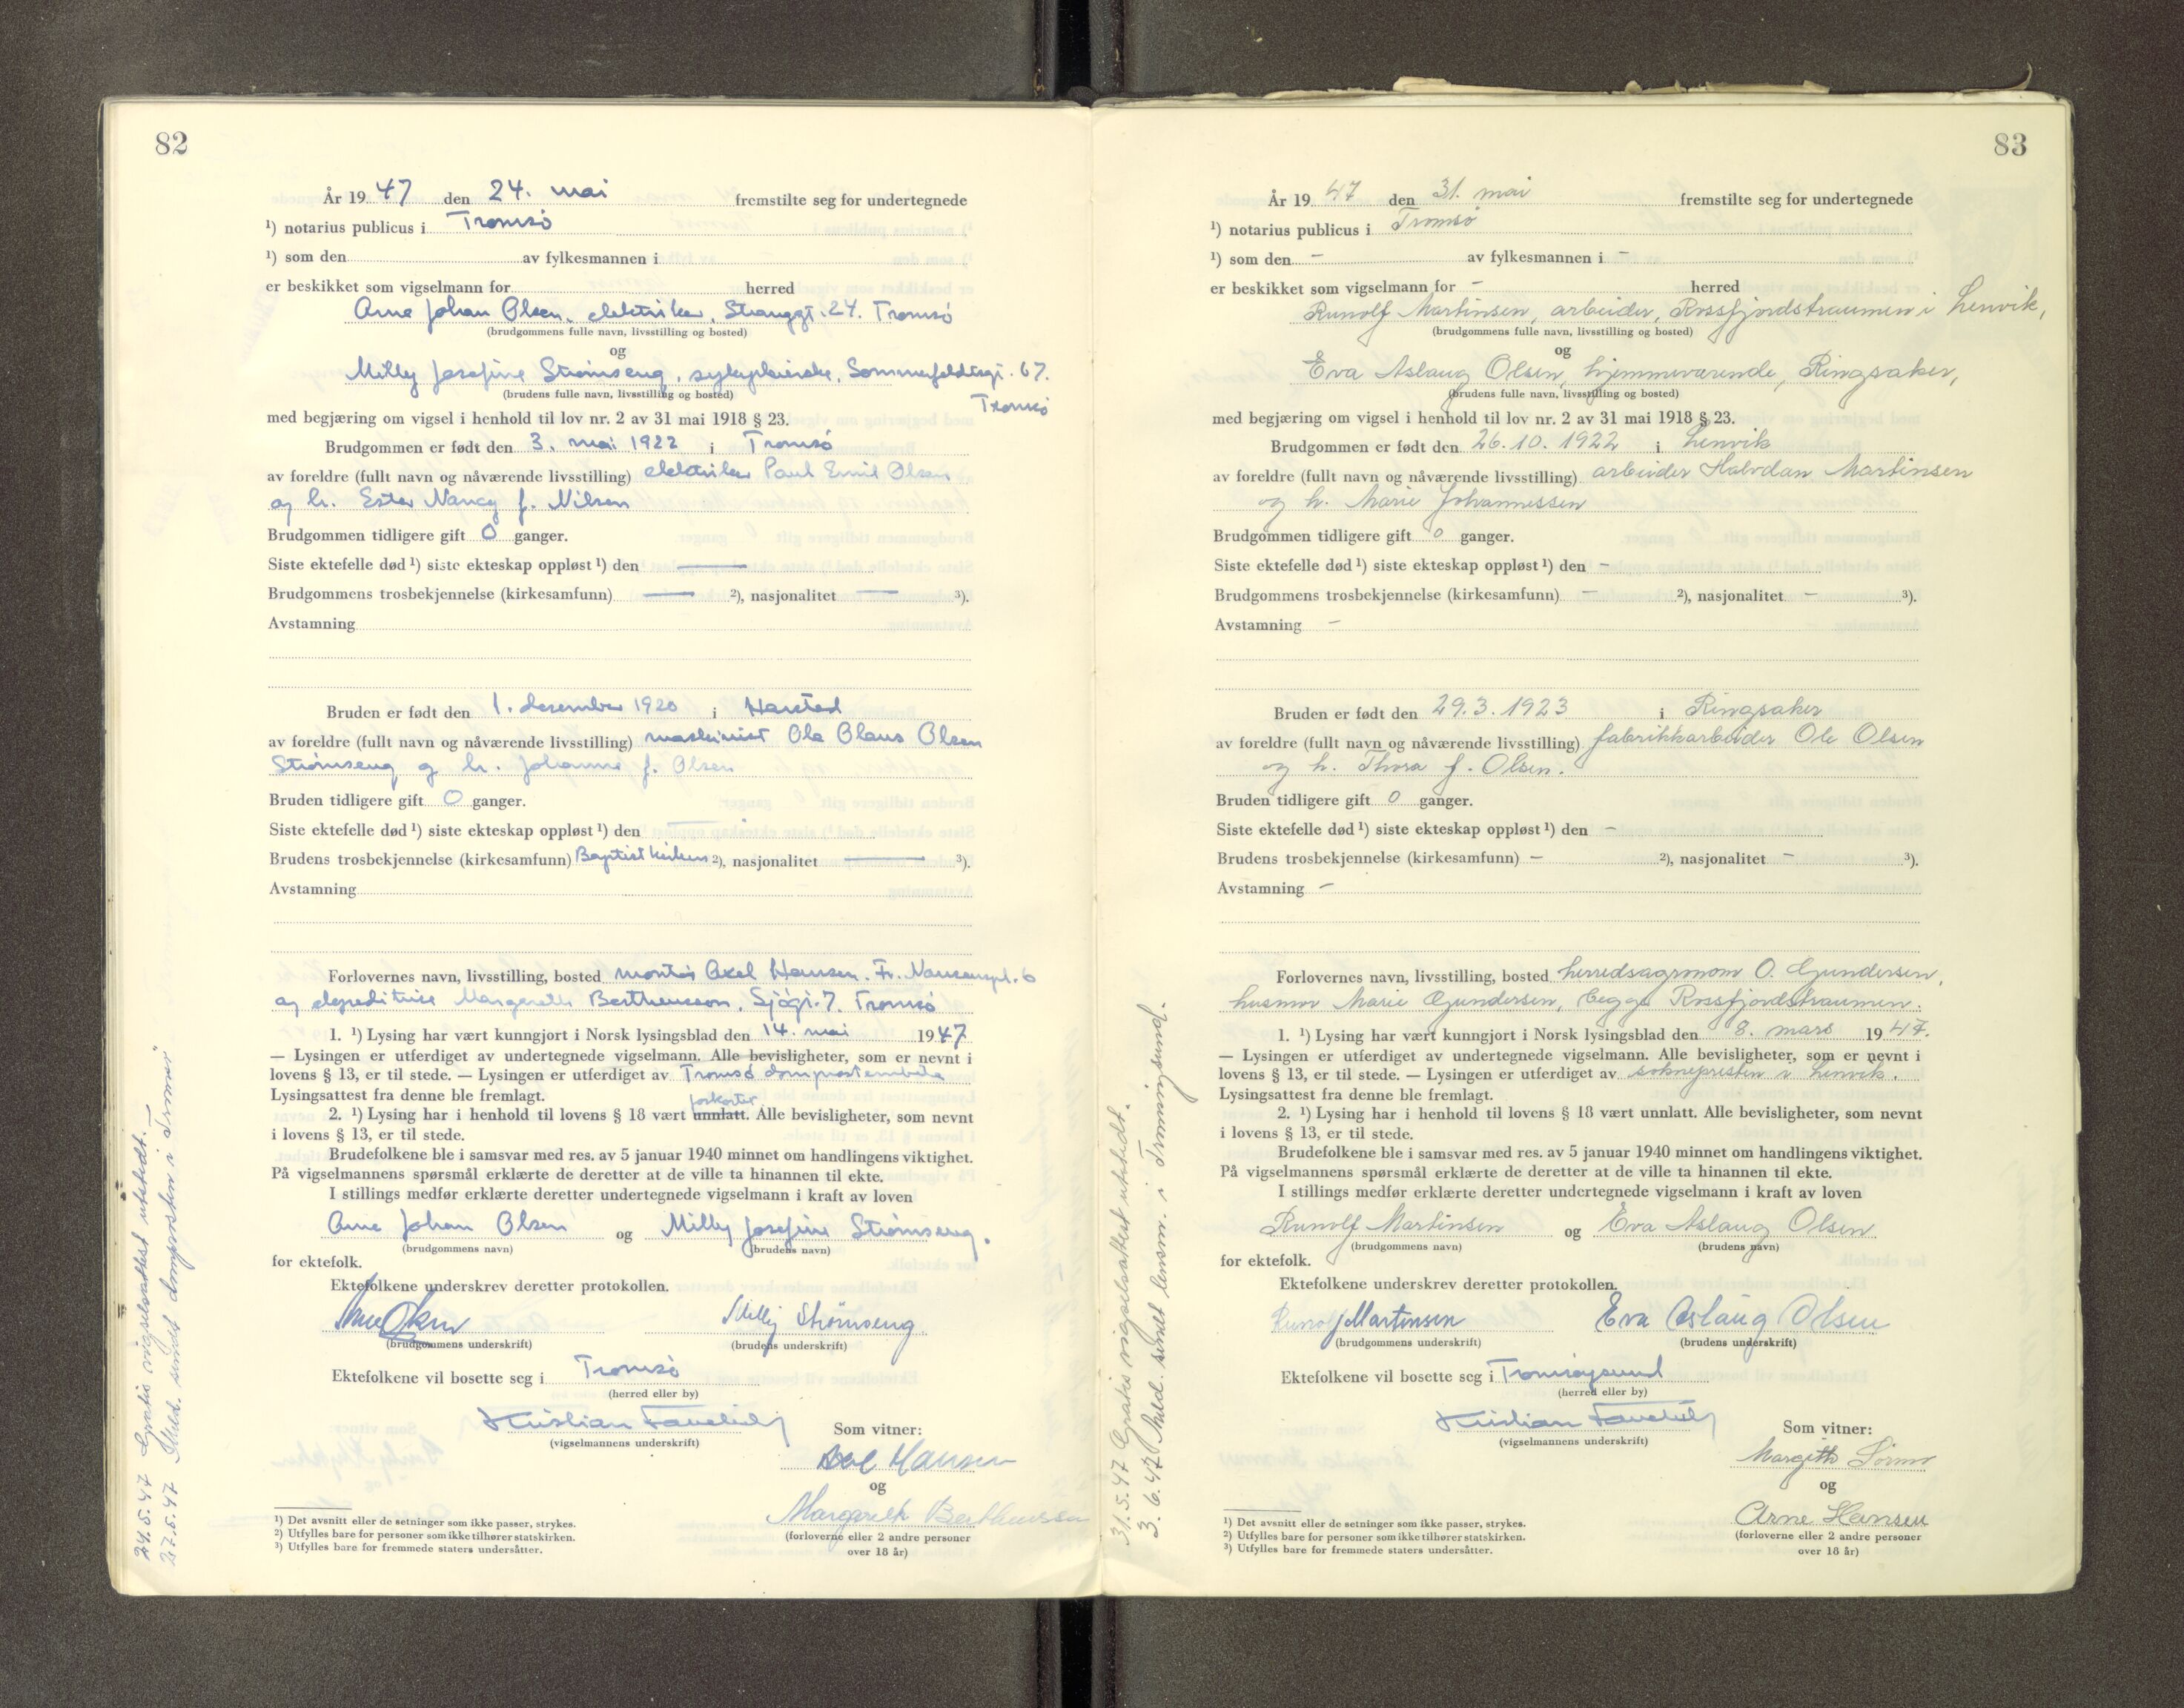 82
År 19 47 den 24. mai fremstilte seg for undertegnede
¹) notarius publicus i Tromsø
¹) som den av fylkesmannen i
er beskikket som vigselmann for herred
Arne Johan Olsen, elektriker, Stranggt. 24. Tromsø
(brudgommens fulle navn, livsstilling og bosted)
og
Milly Josefine Strømseng, sykepleierske, Sommerfeldtsgt. 67.
Tromsø
(brudens fulle navn, livsstilling og bosted)
med begjæring om vigsel i henhold til lov nr. 2 av 31 mai 1918 § 23.
Brudgommen er født den 3. mai 1922 i Tromsø
av foreldre (fullt navn og nåværende livsstilling) elektriker Paul Emil Olsen
og h. Ester Nancy f. Nilsen
Brudgommen tidligere gift 0 ganger.
Siste ektefelle død ¹) siste ekteskap oppløst ¹) den —
Brudgommens trosbekjennelse (kirkesamfunn) — ²), nasjonalitet — ³).
Avstamning
Bruden er født den 1. desember 1920 i Harstad
av foreldre (fullt navn og nåværende livsstilling) maskinist Ole Olaus Olsen
Strømseng og h. Johanne f. Olsen
Bruden tidligere gift 0 ganger.
Siste ektefelle død ¹) siste ekteskap oppløst ¹) den —
Brudens trosbekjennelse (kirkesamfunn) Baptistkirken ²), nasjonalitet — ³).
Avstamning
Forlovernes navn, livsstilling, bosted montør Axel Hansen. Fr. Nansenspl. 6
og ekspeditrise Margareth Bertheussen, Sjøgt. 7. Tromsø
1. ¹) Lysing har vært kunngjort i Norsk lysingsblad den 14. mai 1947
— Lysingen er utferdiget av undertegnede vigselmann. Alle bevisligheter, som er nevnt i
lovens § 13, er til stede. — Lysingen er utferdiget av Tromsø domprostembete
Lysingsattest fra denne ble fremlagt.
forkortet
2. ¹) Lysing har i henhold til lovens § 18 vært unnlatt. Alle bevisligheter, som nevnt
i lovens § 13, er til stede.
Brudefolkene ble i samsvar med res. av 5 januar 1940 minnet om handlingens viktighet.
På vigselmannens spørsmål erklærte de deretter at de ville ta hinannen til ekte.
I stillings medfør erklærte deretter undertegnede vigselmann i kraft av loven
Arne Johan Olsen og Milly Josefine Strømseng.
(brudgommens navn) (brudens navn)
for ektefolk.
Ektefolkene underskrev deretter protokollen.
Arne Olsen Milly Strømseng
(brudgommens underskrift) (brudens underskrift)
Ektefolkene vil bosette seg i Tromsø
(herred eller by)
Kristian
(vigselmannens underskrift)
Som vitner:
Axel Hansen
og
Margareth Bertheussen
(forloverne eller 2 andre personer
over 18 år)
¹) Det avsnitt eller de setninger som ikke passer, strykes.
²) Utfylles bare for personer som ikke tilhører statskirken.
³) Utfylles bare for fremmede staters undersåtter.
24.5.47 Gratis vigselsattest utstedt.
27.5.47 Meld. sendt domprosten i Tromsø
83
År 19 47 den 31. mai fremstilte seg for undertegnede
¹) notarius publicus i Tromsø
¹) som den – av fylkesmannen i –
er beskikket som vigselmann for – herred
Runolf Martinsen, arbeider, Rossfjordstraumen i Lenvik,
(brudgommens fulle navn, livsstilling og bosted)
og
Eva Aslaug Olsen, hjemmeværende, Ringsaker,
(brudens fulle navn, livsstilling og bosted)
med begjæring om vigsel i henhold til lov nr. 2 av 31 mai 1918 § 23.
Brudgommen er født den 26.10.1922 i Lenvik
av foreldre (fullt navn og nåværende livsstilling) arbeider Halvdan Martinsen
og h. Marie Johannessen
Brudgommen tidligere gift 0 ganger.
Siste ektefelle død ¹) siste ekteskap oppløst ¹) den –
Brudgommens trosbekjennelse (kirkesamfunn) – ²), nasjonalitet – ³).
Avstamning –
Bruden er født den 29.3.1923 i Ringsaker
av foreldre (fullt navn og nåværende livsstilling) fabrikkarbeider Ole Olsen
og h. Thora f. Olsen.
Bruden tidligere gift 0 ganger.
Siste ektefelle død ¹) siste ekteskap oppløst ¹) den –
Brudens trosbekjennelse (kirkesamfunn) – ²), nasjonalitet – ³).
Avstamning –
Forlovernes navn, livsstilling, bosted herredsagronom O. Gundersen,
husmor Marie Gundersen, begge Rossfjordstraumen.
1. ¹) Lysing har vært kunngjort i Norsk lysingsblad den 8. mars 1947.
— Lysingen er utferdiget av undertegnede vigselmann. Alle bevisligheter, som er nevnt i
lovens § 13, er til stede. — Lysingen er utferdiget av soknepresten i Lenvik.
Lysingsattest fra denne ble fremlagt.
2. ¹) Lysing har i henhold til lovens § 18 vært unnlatt. Alle bevisligheter, som nevnt
i lovens § 13, er til stede.
Brudefolkene ble i samsvar med res. av 5 januar 1940 minnet om handlingens viktighet.
På vigselmannens spørsmål erklærte de deretter at de ville ta hinannen til ekte.
I stillings medfør erklærte deretter undertegnede vigselmann i kraft av loven
Runolf Martinsen og Eva Aslaug Olsen
(brudgommens navn) (brudens navn)
for ektefolk.
Ektefolkene underskrev deretter protokollen.
Runolf Martinsen Eva Aslaug Olsen
(brudgommens underskrift) (brudens underskrift)
Ektefolkene vil bosette seg i Tromsøysund
(herred eller by)
Kristian
(vigselmannens underskrift)
Som vitner:
Margith
og
Arne Hansen
(forloverne eller 2 andre personer
over 18 år)
¹) Det avsnitt eller de setninger som ikke passer, strykes.
²) Utfylles bare for personer som ikke tilhører statskirken.
³) Utfylles bare for fremmede staters undersåtter.
31.5.47 Gratis vigselsattest utstedt.
3.6.47 Meld. sendt lensm. i Tromsøysund.